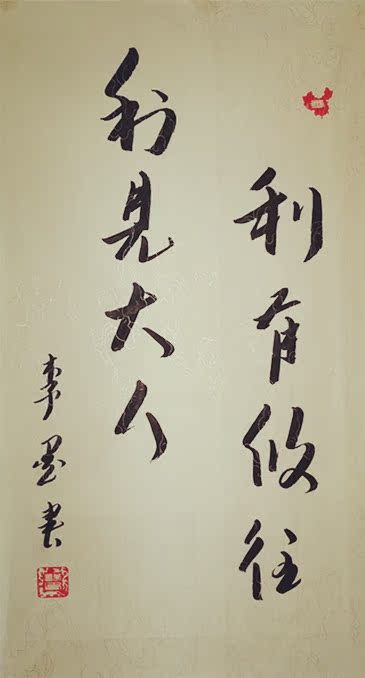 利有攸往
利見大人
李墨書